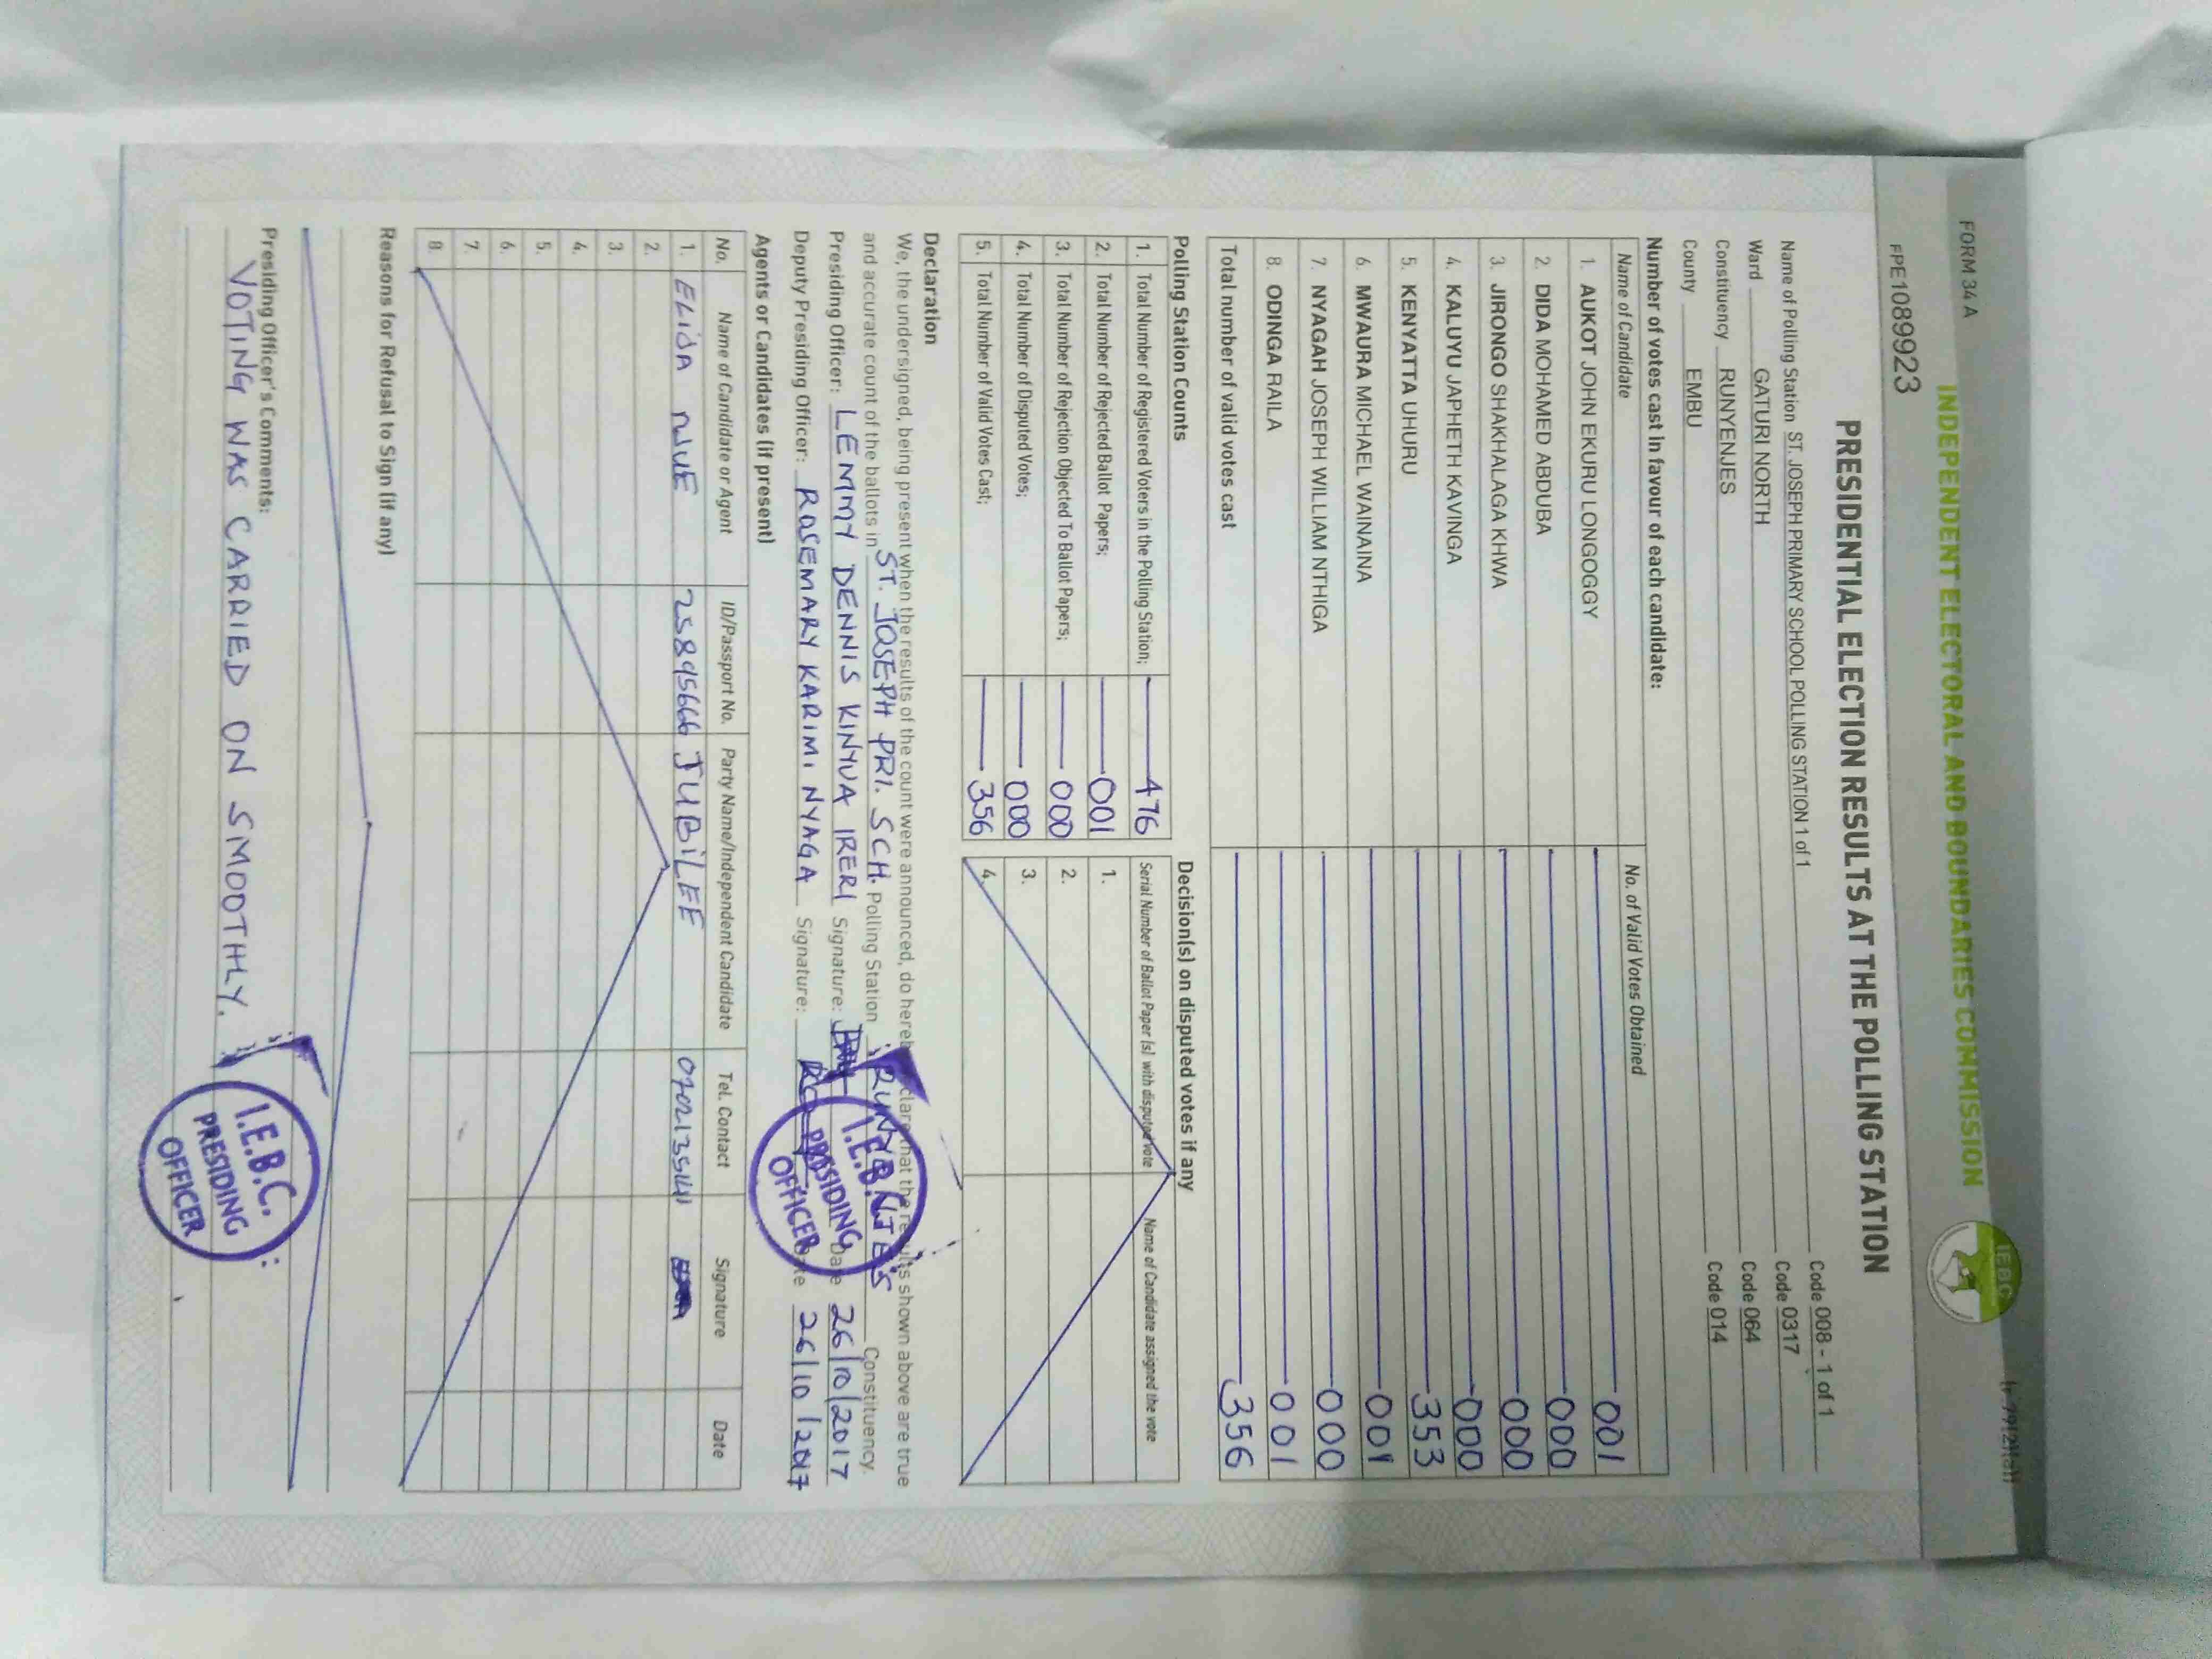 FORM 34 A
INDEPENDENT ELECTORAL AND BOUNDARIES COMMISSION
IEBC
PE1089923
PRESIDENTIAL ELECTION RESULTS AT THE POLLING STATION
Name of Polling Station ST. JOSEPH PRIMARY SCHOOL POLLING STATION 1 of 1 Code 008 - 1 of 1
Ward GATURI NORTH Code 0317
Constituency RUNYENJES Code 064
County EMBU Code 014
Number of votes cast in favour of each candidate:
Name of Candidate No. of Valid Votes Obtained
1. AUKOT JOHN EKURU LONGOGGY 001
2. DIDA MOHAMED ABDUBA 000
3. JIRONGO SHAKHALAGA KHWA 000
4. KALUYU JAPHETH KAVINGA 000
5. KENYATTA UHURU 353
6. MWAURA MICHAEL WAINAINA 001
7. NYAGAH JOSEPH WILLIAM NTHIGA 000
8. ODINGA RAILA 001
Total number of valid votes cast 356
Polling Station Counts Decision(s) on disputed votes if any
1. Total Number of Registered Voters in the Polling Station; 476
2. Total Number of Rejected Ballot Papers; 001
3. Total Number of Rejection Objected To Ballot Papers; 000
4. Total Number of Disputed Votes; 000
5. Total Number of Valid Votes Cast; 356
Serial Number of Ballot Paper (s) with disputed vote Name of Candidate assigned the vote
1.
2.
3.
4.
Declaration
We, the undersigned, being present when the results of the count were announced, do hereby declare that the results shown above are true
and accurate count of the ballots in ST. JOSEPH PRI. SCH. Polling Station RUNYENJES Constituency.
Presiding Officer: LEMMY DENNIS KINYUA IRERI Signature: Date 26/10/2017
Deputy Presiding Officer: ROSEMARY KARIMI NYAGA Signature: Date 26/10/2017
I.E.B.C.
PRESIDING
OFFICER
Agents or Candidates (if present)
No. Name of Candidate or Agent ID/Passport No. Party Name/Independent Candidate Tel. Contact Signature Date
1. ELIDA NJUE 25895666 JUBILEE 0702135141
2.
3.
4.
5.
6.
7.
8.
Reasons for Refusal to Sign (if any)
Presiding Officer's Comments:
VOTING WAS CARRIED ON SMOOTHLY.
I.E.B.C.
PRESIDING
OFFICER